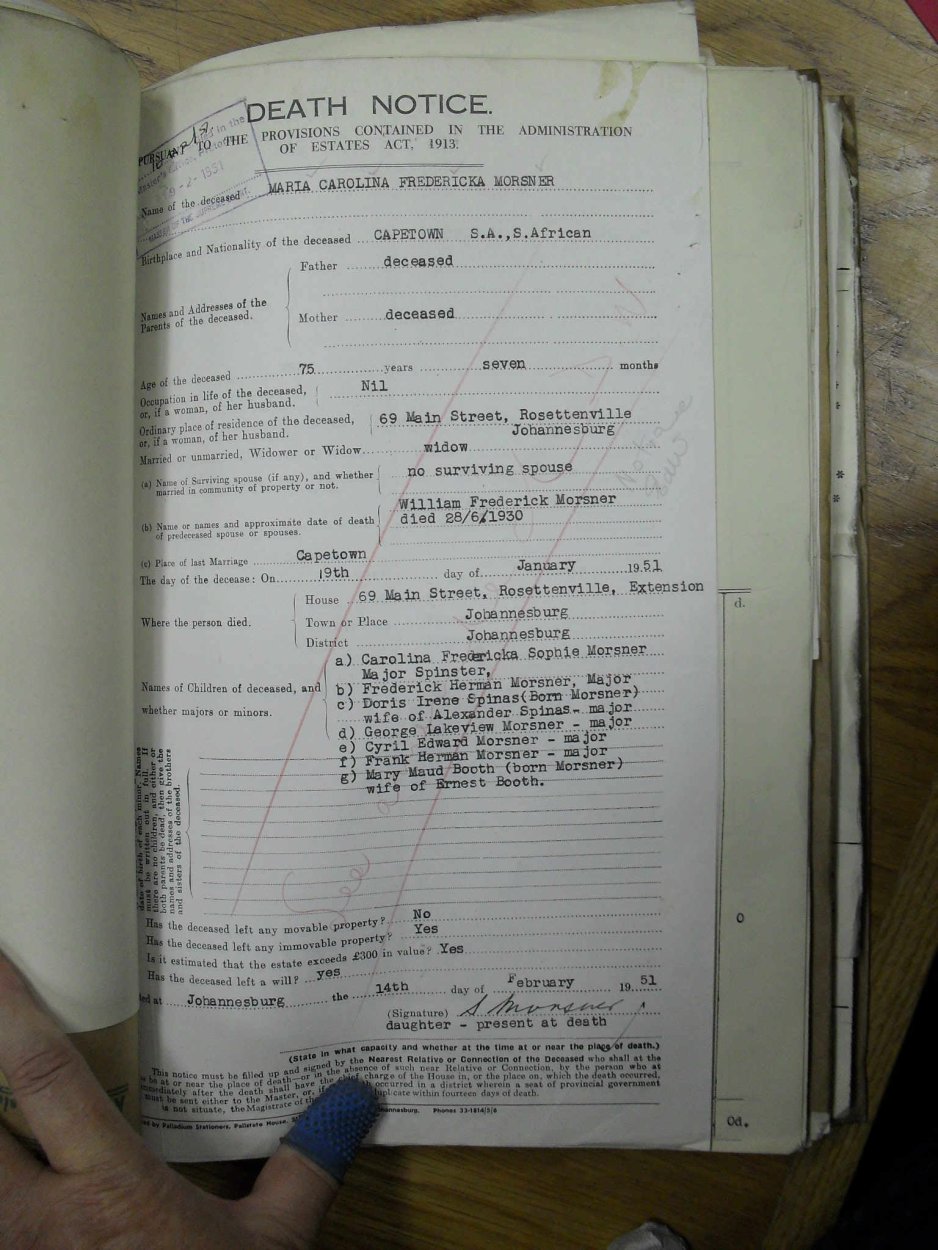 DEATH NOTICE.
PURSUANT TO THE PROVISIONS CONTAINED IN THE ADMINISTRATION
OF ESTATES ACT, 1913.
Name of the deceased MARIA CAROLINA FREDERICKA MORSNER
Birthplace and Nationality of the deceased CAPETOWN S.A.,S.African
Father deceased
Names and Addresses of the
Parents of the deceased.
Mother deceased
Age of the deceased 75 years seven months
Occupation in life of the deceased, Nil
or, if a woman, of her husband.
Ordinary place of residence of the deceased, 69 Main Street, Rosettenville
or, if a woman, of her husband. Johannesburg
Married or unmarried, Widower or Widow widow
(a) Name of Surviving spouse (if any), and whether no surviving spouse
married in community of property or not.
William Frederick Morsner
(b) Name or names and approximate date of death died 28/6/1930
of predeceased spouse or spouses.
(c) Place of last Marriage Capetown
The day of the decease: On 19th day of January 1951
House 69 Main Street, Rosettenville, Extension
Where the person died. Town or Place Johannesburg
District Johannesburg
a) Carolina Fredericka Sophie Morsner
Major Spinster,
Names of Children of deceased, and b) Frederick Herman Morsner, Major
whether majors or minors. c) Doris Irene Spinas(Born Morsner)
wife of Alexander Spinas- major
d) George Lakeview Morsner - major
e) Cyril Edward Morsner - major
f) Frank Herman Morsner - major
g) Mary Maud Booth (born Morsner)
wife of Ernest Booth.
date of birth of each minor. Names
must be written out in full. If
there are no children, and either or
both parents be dead, then give the
names and addresses of the brothers
and sisters of the deceased.
Has the deceased left any movable property? No
Has the deceased left any immovable property? Yes
Is it estimated that the estate exceeds £300 in value? Yes
Has the deceased left a will? yes
ted at Johannesburg the 14th day of February 1951
(Signature) S Morsner
daughter - present at death
(State in what capacity and whether at the time at or near the place of death.)
This notice must be filled up and signed by the Nearest Relative or Connection of the Deceased who shall at the
be at or near the place of death—or in the absence of such near Relative or Connection, by the person who at
immediately after the death shall have the chief charge of the House in, or the place on, which the death occurred,
must be sent either to the Master, or, if occurred in a district wherein a seat of provincial government
is not situate, the Magistrate of duplicate within fourteen days of death.
ed by Palladium Stationers, Palstate House, Johannesburg. Phones 33-1814/5/6
d.
0
0d.